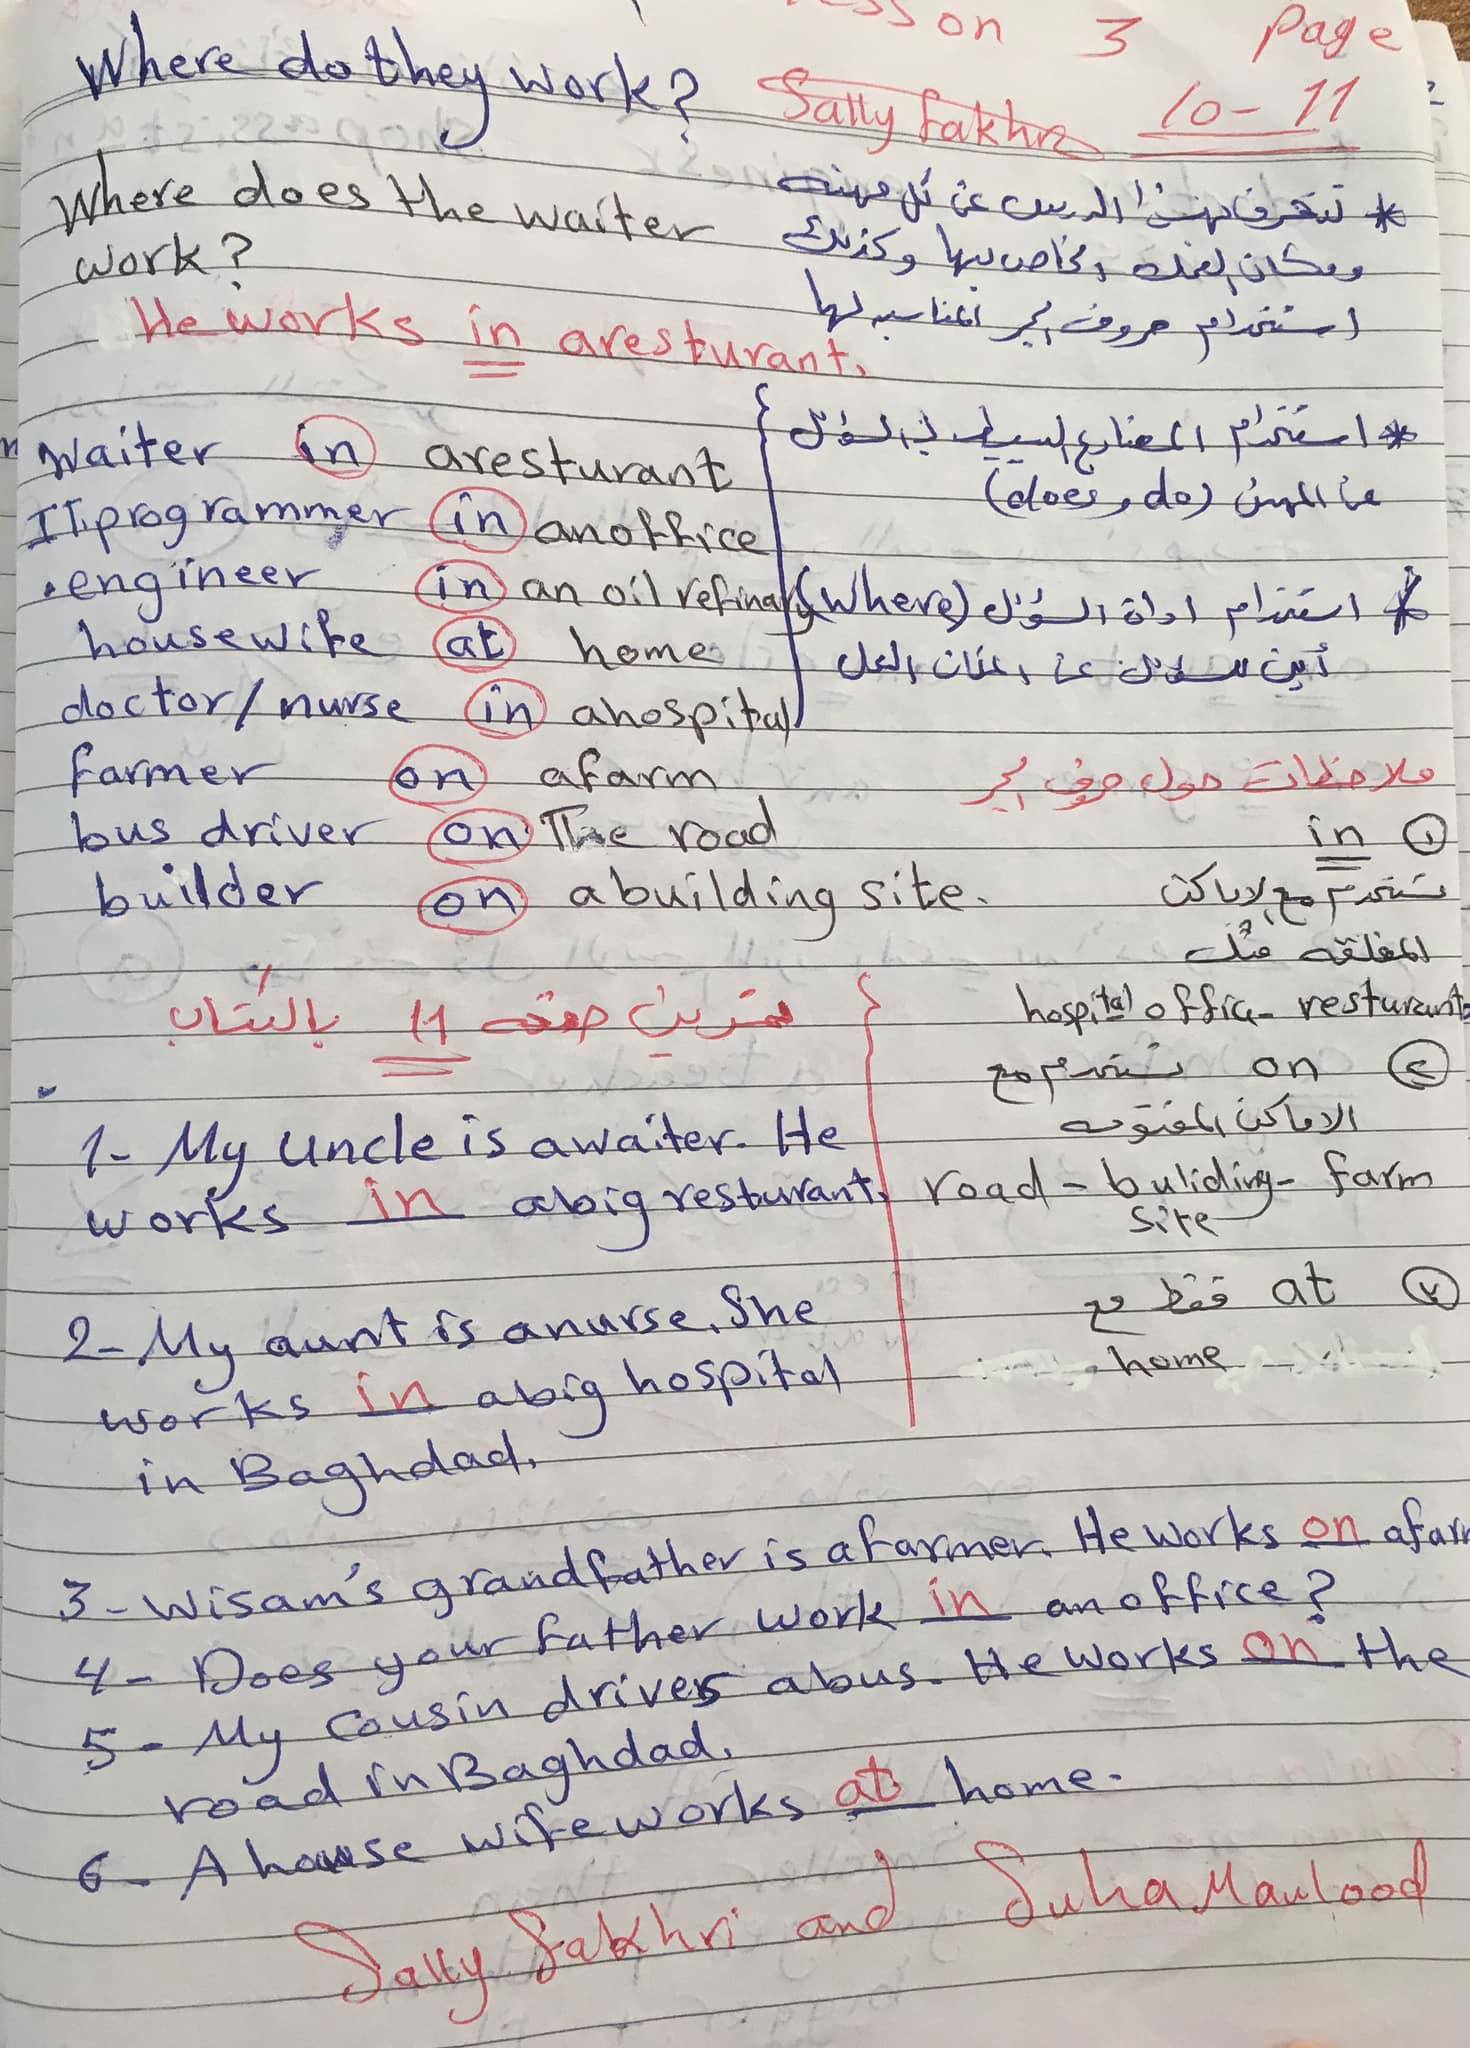 Lesson 3 Page
Where do they work? Sally Fakhri 10-11
Where does the waiter
work?
He works in aresturant.
* نتعرف بهذا الدرس عن كل مهنه
ومكان العمل الخاص بها وكذلك
استخدام حروف الجر المناسبه لها
Waiter in aresturant
IT programmer in anoffice
.engineer in an oil refinary
housewife at home
doctor/nurse in ahospital
farmer on afarm
bus driver on The road
builder on abuilding site.
* استخدام المضارع البسيط في السؤال
عن المهن (do و does)
* استخدام اداة السؤال (Where)
أين للسؤال عن المكان العمل
ملاحظات حول حروف الجر
① in
تستخدم مع الاماكن
المغلقه مثل
hospital office - resturant
② on تستخدم مع
الاماكن المفتوحه
road - buliding - farm
site
③ at فقط مع
home
تمرين صفحه 11 بالكتاب
1- My uncle is awaiter. He
works in abig resturant.
2- My aunt is anurse. She
works in abig hospital
in Baghdad.
3- Wisam's grandfather is afarmer. He works on afarm
4- Does your father work in an office?
5- My Cousin drives abus. He works on the
road in Baghdad.
6- A house wife works at home.
Sally Fakhri and Suha Maulood